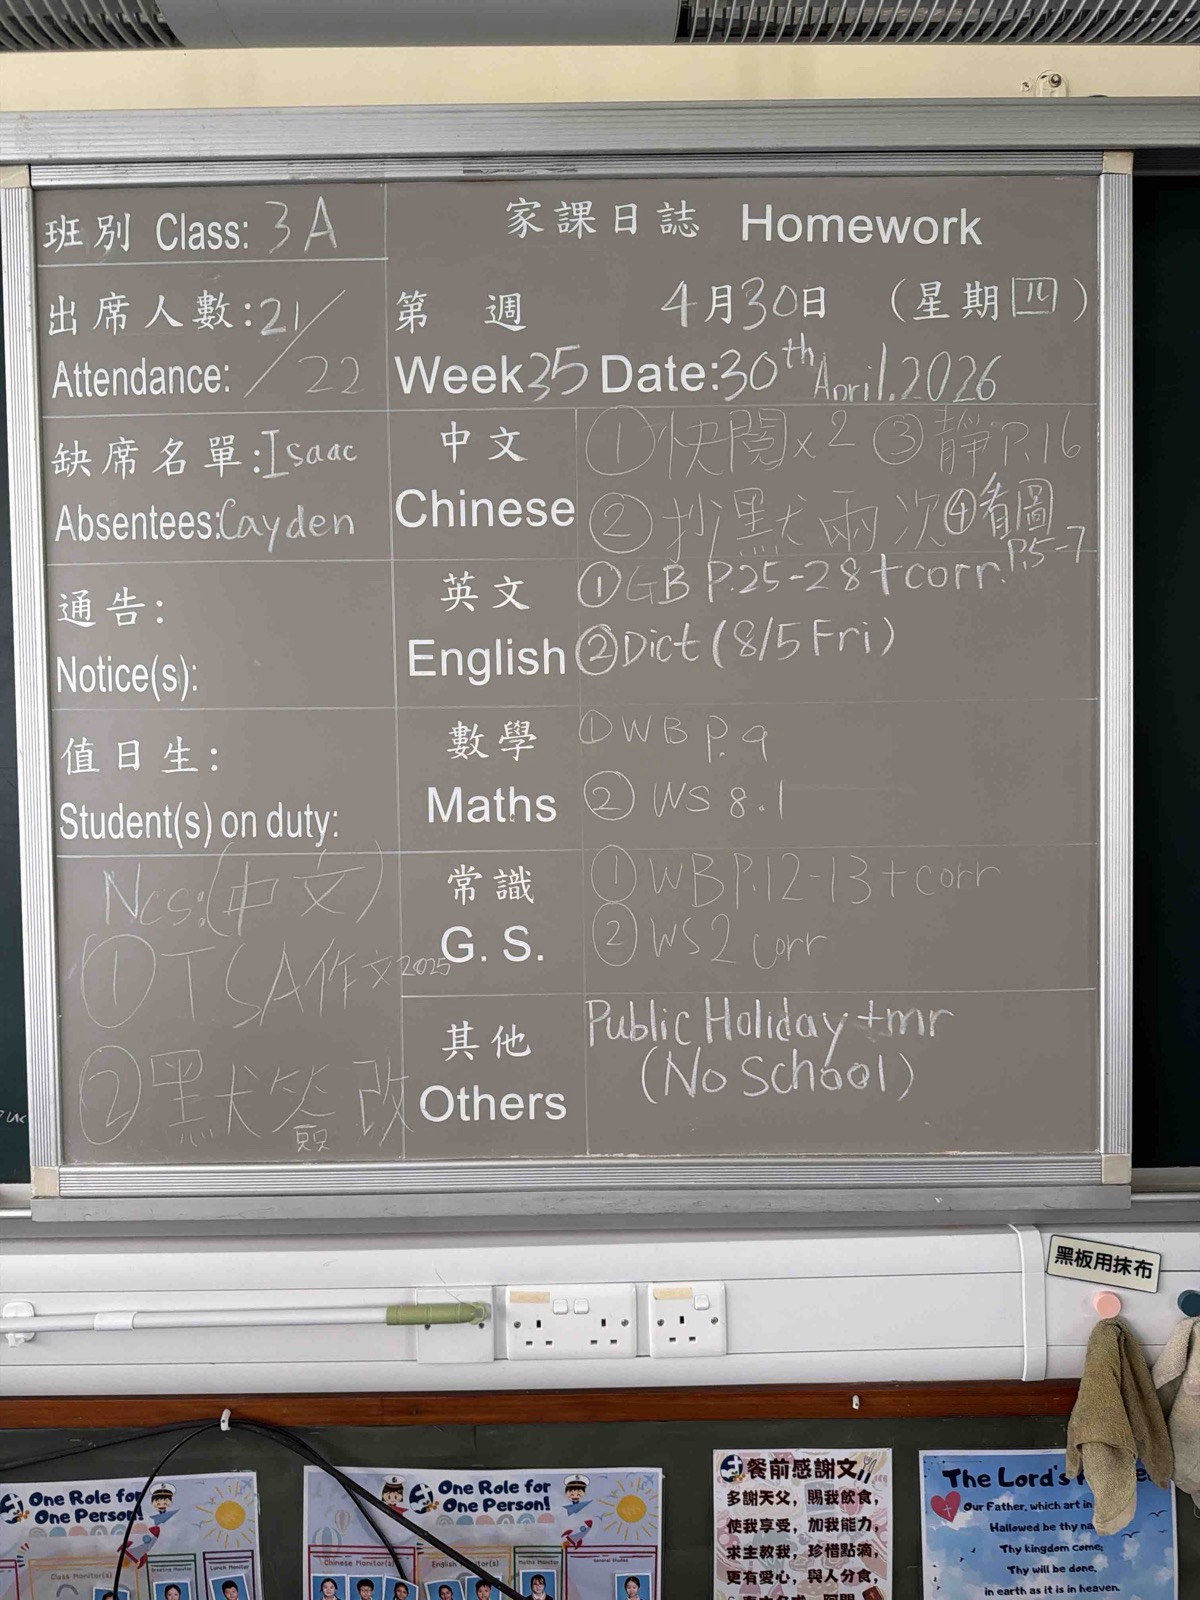 班別 Class: 3A
家課日誌 Homework
出席人數: 21/22
Attendance:
第 週 4月30日 (星期四)
Week 35 Date: 30th April. 2026
缺席名單: Isaac
Absentees: Cayden
中文
Chinese
① 快閱x2 ③ 靜P.16
② 抄默兩次 ④看圖
P.5-7
通告:
Notice(s):
英文
English
①GB P.25-28+corr.
②Dict (8/5 Fri)
值日生:
Student(s) on duty:
數學
Maths
①WB P.9
② WS 8.1
Ncs:(中文)
①TSA作文2025
②默簽改
常識
G. S.
① WB P.12-13+corr
② WS2 corr
其他
Others
Public Holiday tmr
(No School)
黑板用抹布
One Role for
One Person!
Class Monitor(s)
Greeting Monitor
Lunch Monitor
One Role for
One Person!
Chinese Monitor(s)
English Monitor(s)
Maths Monitor
General Studies
餐前感謝文
多謝天父，賜我飲食，
使我享受，加我能力，
求主教我，珍惜點滴，
更有愛心，與人分食，
The Lord's
Our Father, which art in
Hallowed be thy
Thy kingdom come;
Thy will be done,
in earth as it is in heaven.